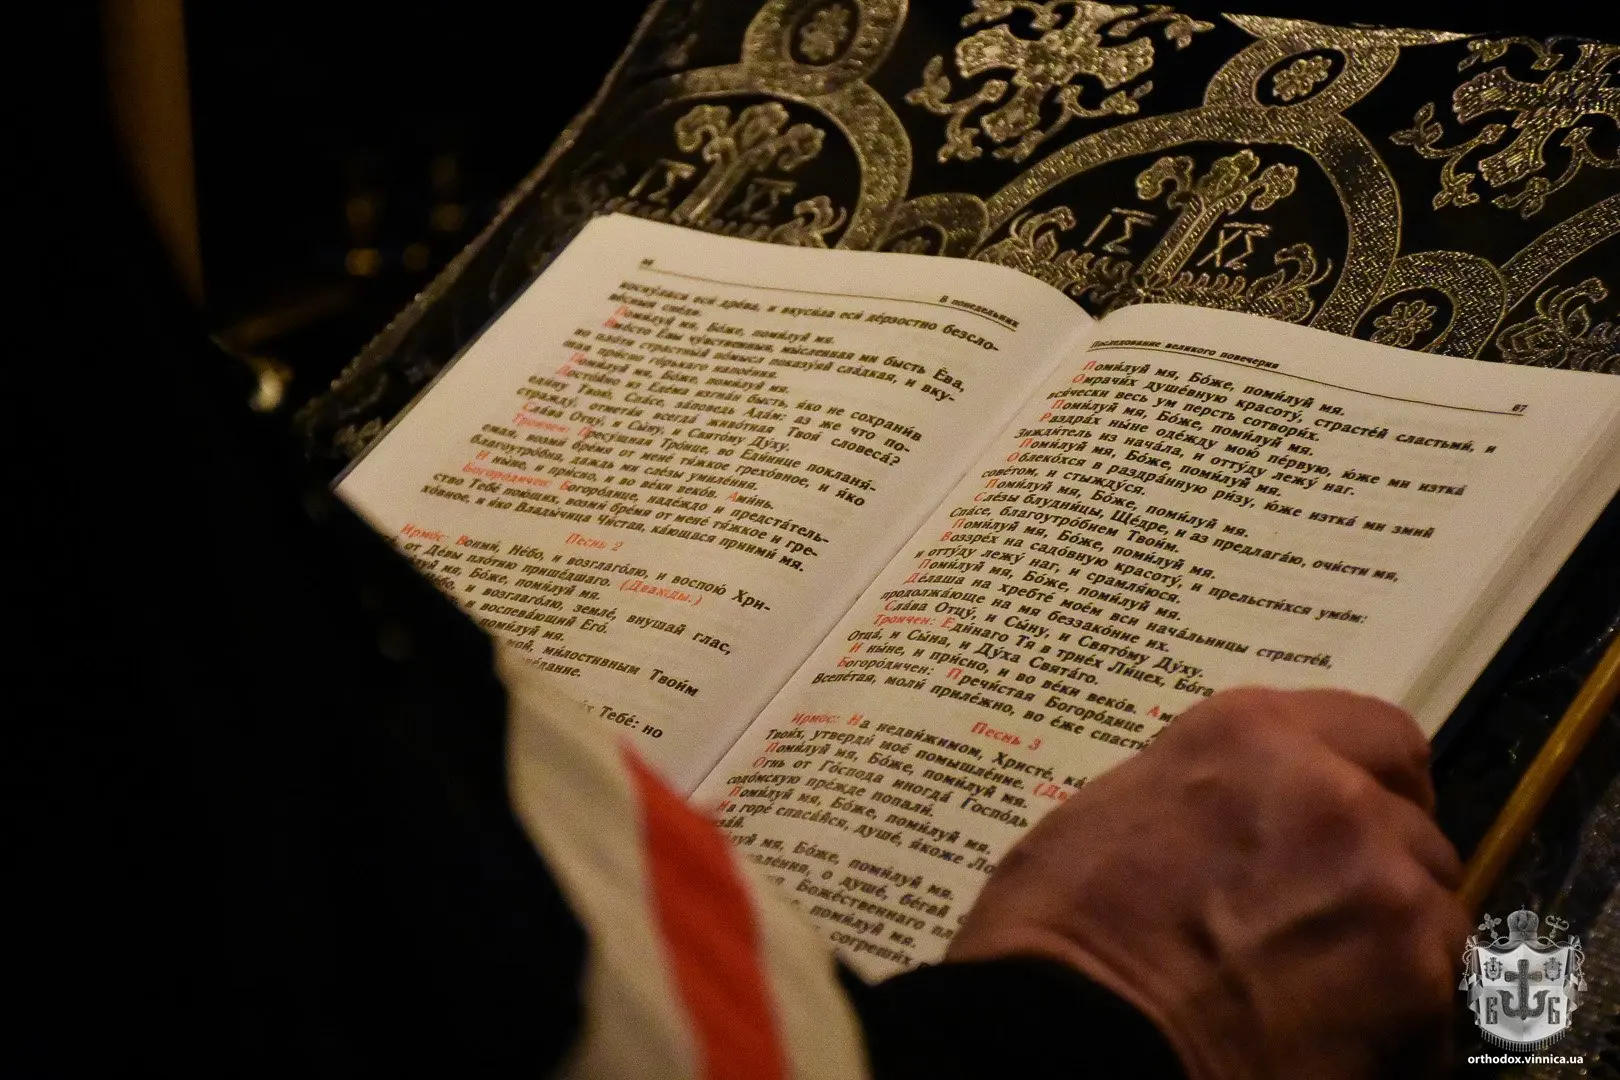 ІС ХС
ІС ХС
В понедельник
косну́лася еси́ дре́ва, и вкуси́ла еси́ де́рзостно безсло-
ве́сныя сне́ди.
Поми́луй мя, Бо́же, поми́луй мя.
Вме́сто Е́вы чу́вственныя, мы́сленная ми бысть Е́ва,
во пло́ти стра́стный по́мысл показу́яй сла́дкая, и вку-
ша́я при́сно го́рькаго напое́ния.
Поми́луй мя, Бо́же, поми́луй мя.
Досто́йно из Еде́ма изгна́н бысть, я́ко не сохрани́в
еди́ну Твою́, Спа́се, за́поведь Ада́м: аз же что по-
стражду́, отмета́я всегда́ живо́тная Твоя́ словеса́?
Сла́ва Отцу́, и Сы́ну, и Свято́му Ду́ху.
Тро́ичен: Пресу́щная Тро́ице, во Еди́нице покланя́-
емая, возми́ бре́мя от мене́ тя́жкое грехо́вное, и я́ко
благоутро́бна, даждь ми сле́зы умиле́ния.
И ны́не, и при́сно, и во ве́ки веко́в. Ами́нь.
Богоро́дичен: Богоро́дице, наде́ждо и предста́тель-
ство Тебе́ пою́щих, возми́ бре́мя от мене́ тя́жкое и гре-
хо́вное, и я́ко Влады́чица Чи́стая, ка́ющася приими́ мя.
Песнь 2
Ирмо́с: Вонми́, Не́бо, и возглаго́лю, и воспою́ Хри-
от Де́вы пло́тию прише́дшаго. (Два́жды.)
мя, Бо́же, поми́луй мя.
и возглаго́лю, земле́, внуша́й глас,
и воспева́ющий Его́.
поми́луй мя.
ми́лостивным Твои́м
Тебе́: но
Последование великого повечерия
67
Поми́луй мя, Бо́же, поми́луй мя.
Омрачи́х душе́вную красоту́, страсте́й сластьми́, и
вся́чески весь ум персть сотвори́х.
Поми́луй мя, Бо́же, поми́луй мя.
Раздра́х ны́не оде́жду мою́ пе́рвую, ю́же ми изтка́
Зижди́тель из нача́ла, и отту́ду лежу́ наг.
Поми́луй мя, Бо́же, поми́луй мя.
Облеко́хся в раздра́нную ри́зу, ю́же изтка́ ми змий
сове́том, и стыжду́ся.
Поми́луй мя, Бо́же, поми́луй мя.
Сле́зы блудни́цы, Ще́дре, и аз предлага́ю, очи́сти мя,
Спа́се, благоутро́бием Твои́м.
Поми́луй мя, Бо́же, поми́луй мя.
Воззре́х на садо́вную красоту́, и прельсти́хся умо́м:
и отту́ду лежу́ наг, и срамля́юся.
Поми́луй мя, Бо́же, поми́луй мя.
Де́лаша на хребте́ мое́м вси нача́льницы страсте́й,
продолжа́юще на мя беззако́ние их.
Сла́ва Отцу́, и Сы́ну, и Свято́му Ду́ху.
Тро́ичен: Еди́наго Тя в трие́х Ли́цех, Бо́га
Отца́, и Сы́на, и Ду́ха Свята́го.
И ны́не, и при́сно, и во ве́ки веко́в.
Богоро́дичен: Пречи́стая Богоро́дице
Всепе́тая, моли́ приле́жно, во е́же спасти́
Песнь 3
Ирмо́с: На недви́жимом, Христе́,
Твои́х, утверди́ мое́ помышле́ние.
Поми́луй мя, Бо́же, поми́луй мя.
Огнь от Го́спода иногда́ Госпо́дь
содо́мскую пре́жде попали́.
Поми́луй мя, Бо́же, поми́луй мя.
На горе́ спаса́йся, душе́, я́коже
мя, Бо́же, поми́луй мя.
о душе́, бе́гай
Боже́ственнаго
поми́луй мя.
согреши́х
В Б
orthodox.vinnica.ua